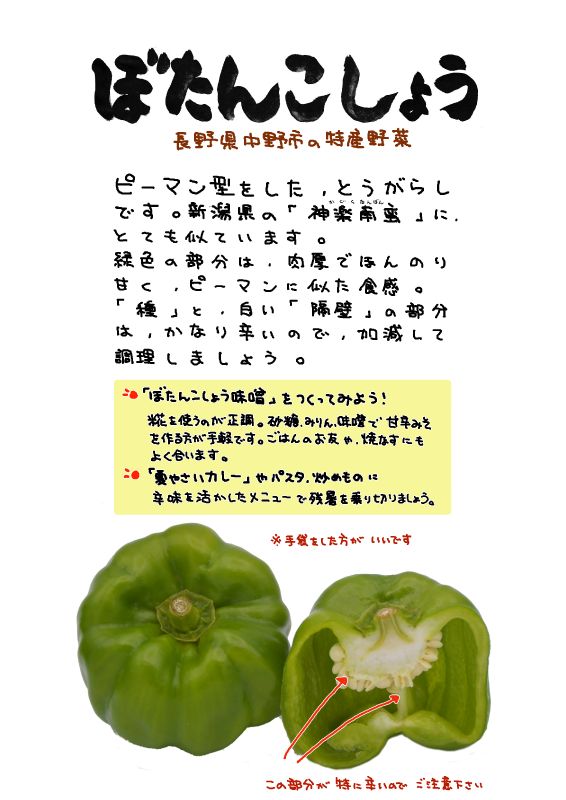 ぼたんこしょう
長野県中野市の特産野菜
ピーマン型をした、とうがらし
です。新潟県の「神楽南蛮」に、
かぐらなんばん
とても似ています。
緑色の部分は、肉厚でほんのり
甘く、ピーマンに似た食感。
「種」と、白い「隔壁」の部分
は、かなり辛いので、加減して
調理しましょう。
「ぼたんこしょう味噌」をつくってみよう!
糀を使うのが正調。砂糖、みりん、味噌で甘辛みそ
を作る方が手軽です。ごはんのお友や、焼なすにも
よく合います。
「夏やさいカレー」やパスタ、炒めものに
辛味を活かしたメニューで残暑を乗り切りましょう。
※手袋をした方がいいです
この部分が特に辛いのでご注意下さい